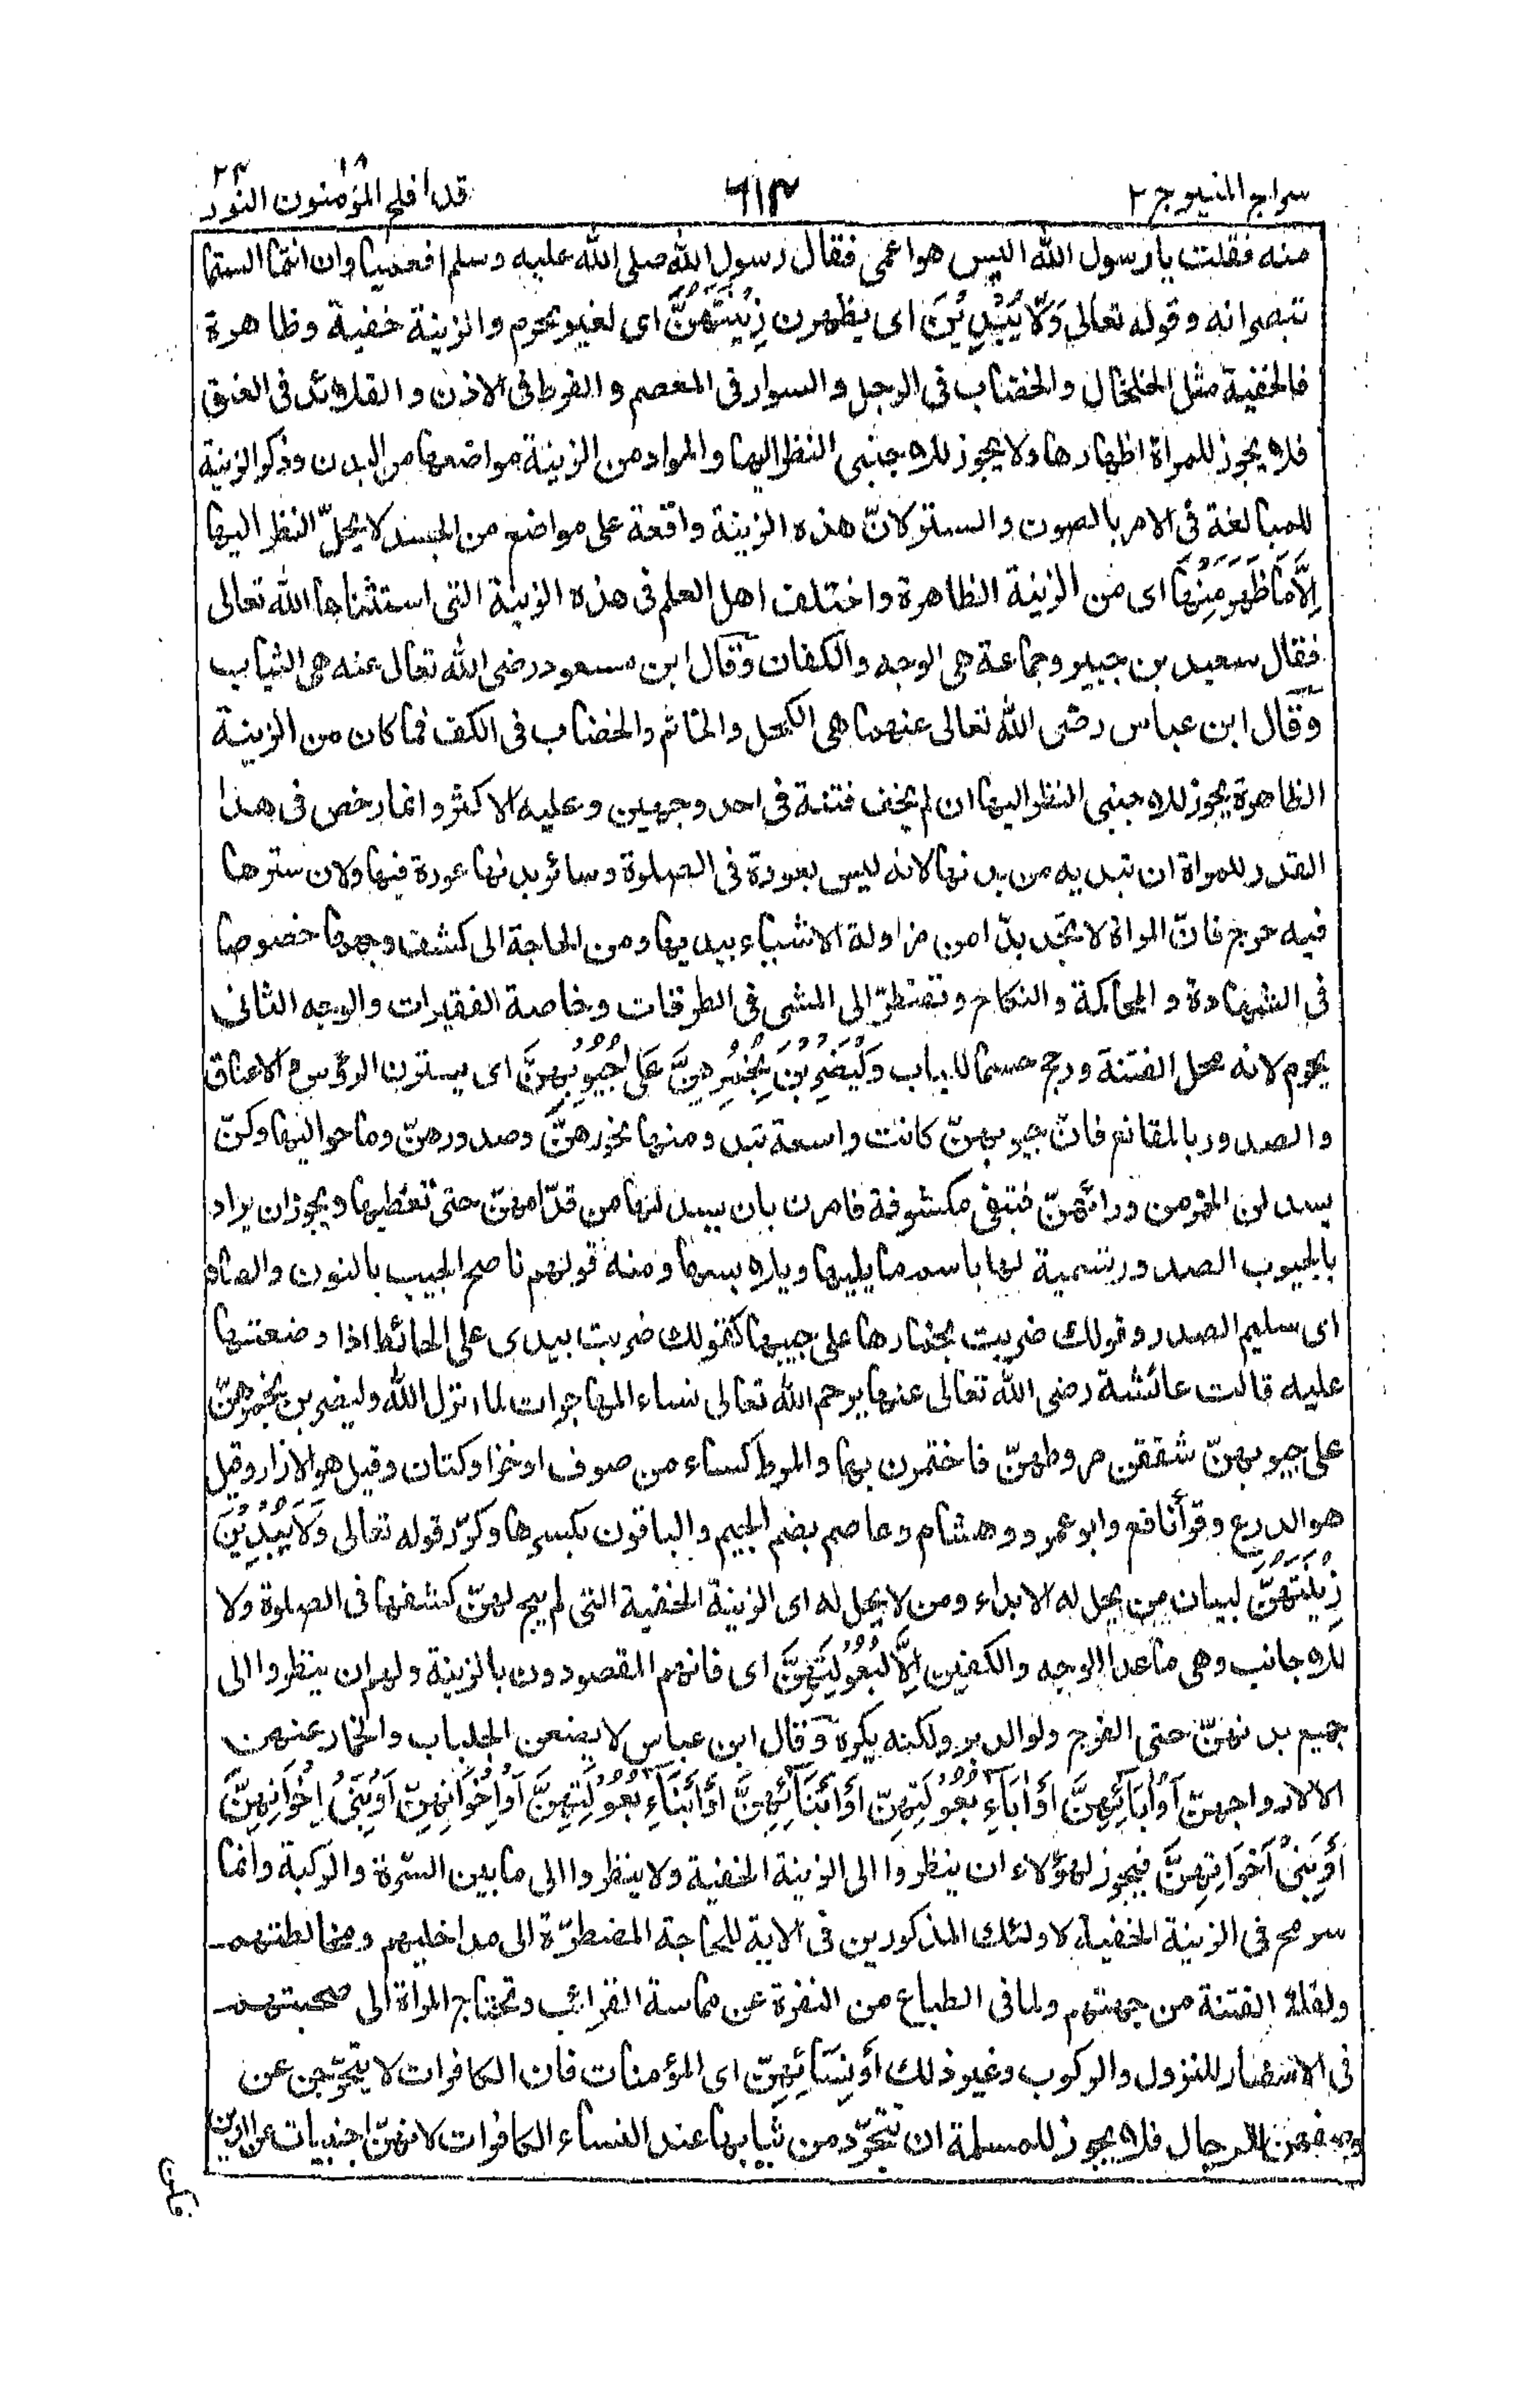 سراج المنير ج ٢
٦١٣
قد افلح المؤمنون ١٨ النور ٢٤
منه فقلت يا رسول الله اليس هو اعمى فقال رسول الله صلى الله عليه وسلم افعميا وان انتما الستما
تبصرانه وقوله تعالى وَلَا يُبْدِيْنَ اى يظهرن زِيْنَتَهُنَّ اى لغير محرم والزينة خفية وظاهرة
فالخفية مثل الخلخال والخضاب فى الرجل والسوار فى المعصم والقرط فى الاذن والقلائد فى العنق
فلا يجوز للمراة اظهارها ولا يجوز للاجنبى النظر اليها والمراد من الزينة مواضعها من البدن وذكر الزينة
للمبالغة فى الامر بالصون والستر لانّ هذه الزينة واقعة على مواضع من الجسد لا يحلّ النظر اليها
اِلَّا مَا ظَهَرَ مِنْهَا اى من الزينة الظاهرة واختلف اهل العلم فى هذه الزينة التى استثناها الله تعالى
فقال سعيد بن جبير وجماعة هى الوجه والكفان وقال ابن مسعود رضى الله تعالى عنه هى الثياب
وقال ابن عباس رضى الله تعالى عنهما هى الكحل والخاتم والخضاب فى الكف فما كان من الزينة
الظاهرة يجوز للاجنبى النظر اليها ان لم يخف فتنة فى احد وجهين وعليه الاكثر وانما رخص فى هذا
القدر للمراة ان تبديه من بدنها لانه ليس بعورة فى الصلوة وسائر بدنها عورة فيها ولان سترها
فيه حرج فانّ المراة لا تجد بدّا من مزاولة الاشياء بيديها ومن الحاجة الى كشف وجهها خصوصا
فى الشهادة والمحاكمة والنكاح وتضطرّ الى المشى فى الطرقات وخاصة الفقيرات والوجه الثانى
يحرم لانه محل الفتنة ورجح حسما للباب وَلْيَضْرِبْنَ بِخُمُرِهِنَّ عَلٰى جُيُوْبِهِنَّ اى يسترن الرؤس والاعناق
والصدور بالمقانع فانّ جيوبهنّ كانت واسعة تبدو منها نحورهنّ وصدورهنّ وما حواليها وكنّ
يسدلن الخمر من ورائهنّ فتبقى مكشوفة فامرن بان يسدلنها من قدّامهنّ حتى تغطيها ويجوز ان يراد
بالجيوب الصدور تسمية لها باسم ما يليها ويلابسها ومنه قولهم ناصح الجيب بالنون والصاد
اى سليم الصدر وقولك ضربت بخمارها على جيبها كقولك ضربت بيدى على الحائط اذا وضعتها
عليه قالت عائشة رضى الله تعالى عنها يرحم الله تعالى نساء المهاجرات لما انزل الله وليضربن بخمرهنّ
على جيوبهنّ شققن مروطهنّ فاختمرن بها والمرط كساء من صوف او خز او كتان وقيل هو الازار وقيل
هو الدرع وقرأ نافع وابو عمرو وهشام وعاصم بضم الجيم والباقون بكسرها وكرّر قوله تعالى وَلَا يُبْدِيْنَ
زِيْنَتَهُنَّ لبيان من يحل له الابداء ومن لا يحل له اى الزينة الخفية التى لم يبح لهنّ كشفها فى الصلوة ولا
للاجانب وهى ما عدا الوجه والكفين اِلَّا لِبُعُوْلَتِهِنَّ اى فانهم المقصودون بالزينة ولهم ان ينظروا الى
جميع بدنهنّ حتى الفرج ولو الدبر ولكنه يكره وقال ابن عباس لا يضعن الجلباب والخمار عنهن
الا لازواجهنّ اَوْ اٰبَآئِهِنَّ اَوْ اٰبَآءِ بُعُوْلَتِهِنَّ اَوْ اَبْنَآئِهِنَّ اَوْ اَبْنَآءِ بُعُوْلَتِهِنَّ اَوْ اِخْوَانِهِنَّ اَوْ بَنِىْ اِخْوَانِهِنَّ
اَوْ بَنِىْ اَخَوَاتِهِنَّ فيجوز لهؤلاء ان ينظروا الى الزينة الخفية ولا ينظروا الى ما بين السّرة والركبة وانما
سومح فى الزينة الخفية لاولئك المذكورين فى الاية للحاجة المضطرّة الى مداخليهم ومخالطتهم
ولقلة الفتنة من جهتهم ولما فى الطباع من النفرة عن مماسة القرائب وتحتاج المراة الى صحبتهم
فى الاسفار للنزول والركوب وغير ذلك اَوْ نِسَآئِهِنَّ اى المؤمنات فان الكافرات لا يتحرّجن عن
وصفهن للرجال فلا يجوز للمسلمة ان تتجرّد من ثيابها عند النساء الكافرات لانهنّ اجنبيات عن الدين